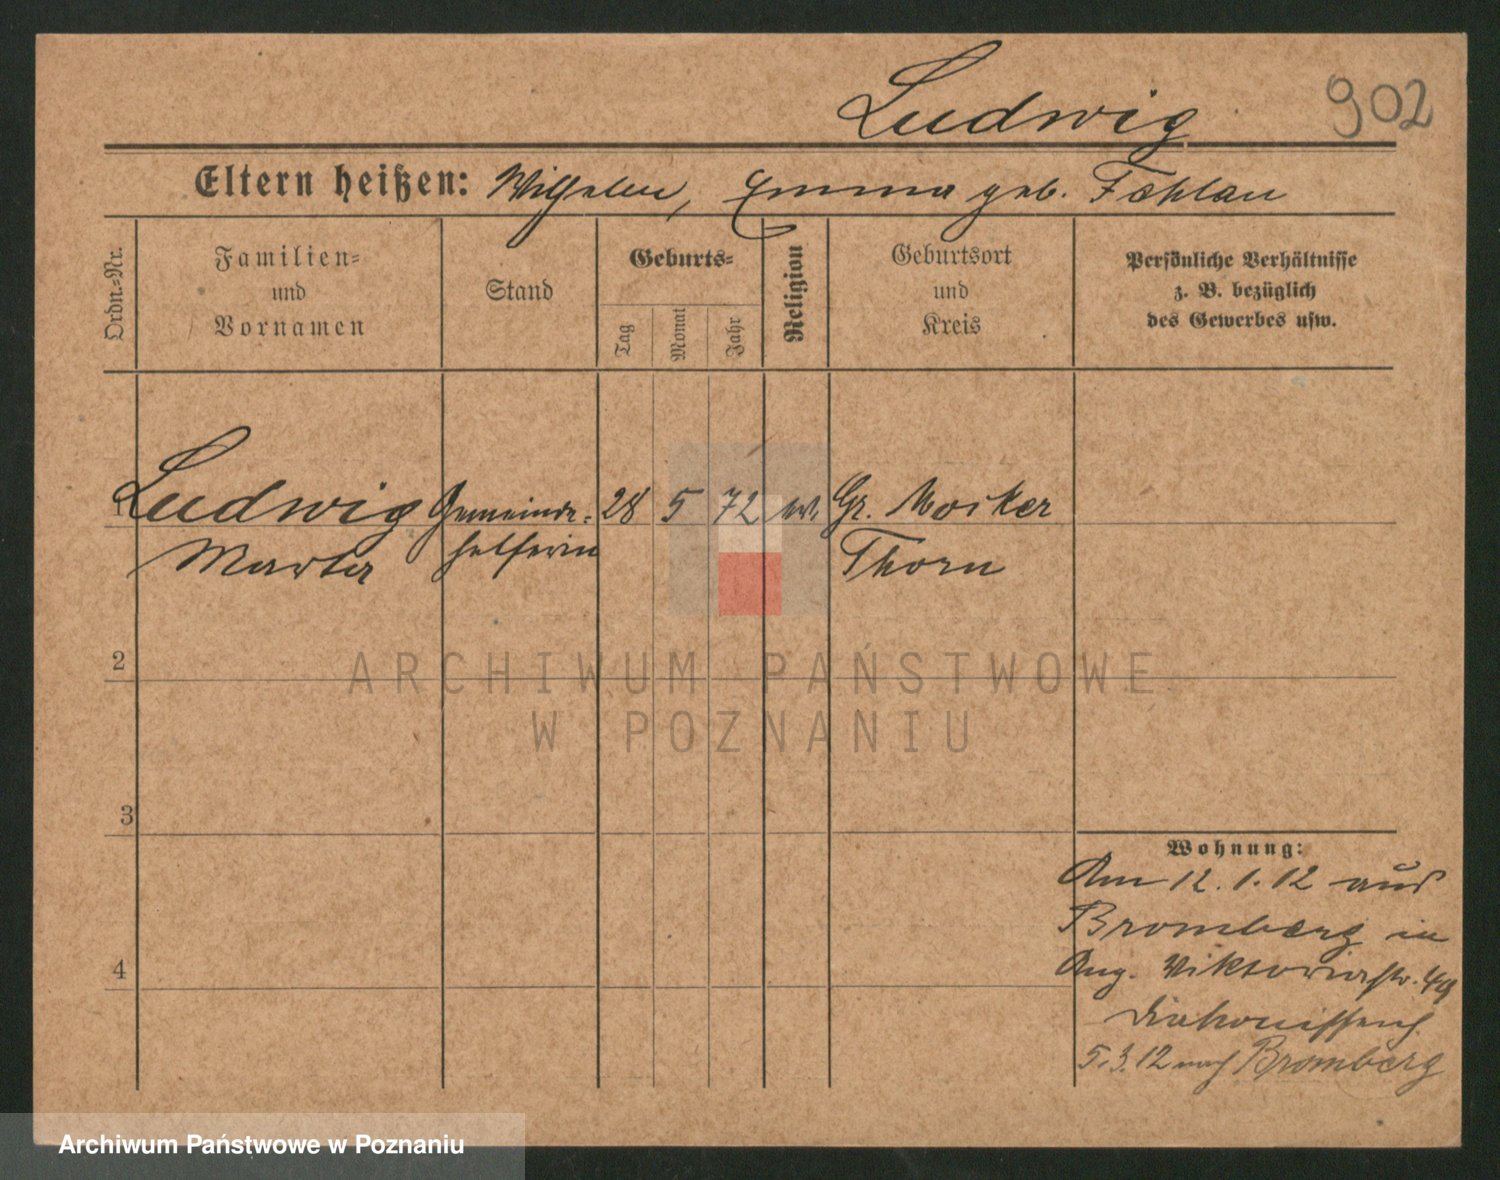 Ludwig 902
Eltern heißen: Wilhelm, Emma geb. Fehlau
Ordn.-Nr.
Familien-
und
Vornamen
Stand
Geburts-
Tag
Monat
Jahr
Religion
Geburtsort
und
Kreis
Persönliche Verhältnisse
z. B. bezüglich
des Gewerbes usw.
1 Ludwig Gemeinde- 28 5 72 ev. Gr. Mocker
Marta helferin Thorn
2
ARCHIWUM PAŃSTWOWE
W POZNANIU
3
Wohnung:
Am 12.1.12 aus
Bromberg in
Aug. Viktoriastr. 49
4
5.3.12 nach Bromberg
Archiwum Państwowe w Poznaniu